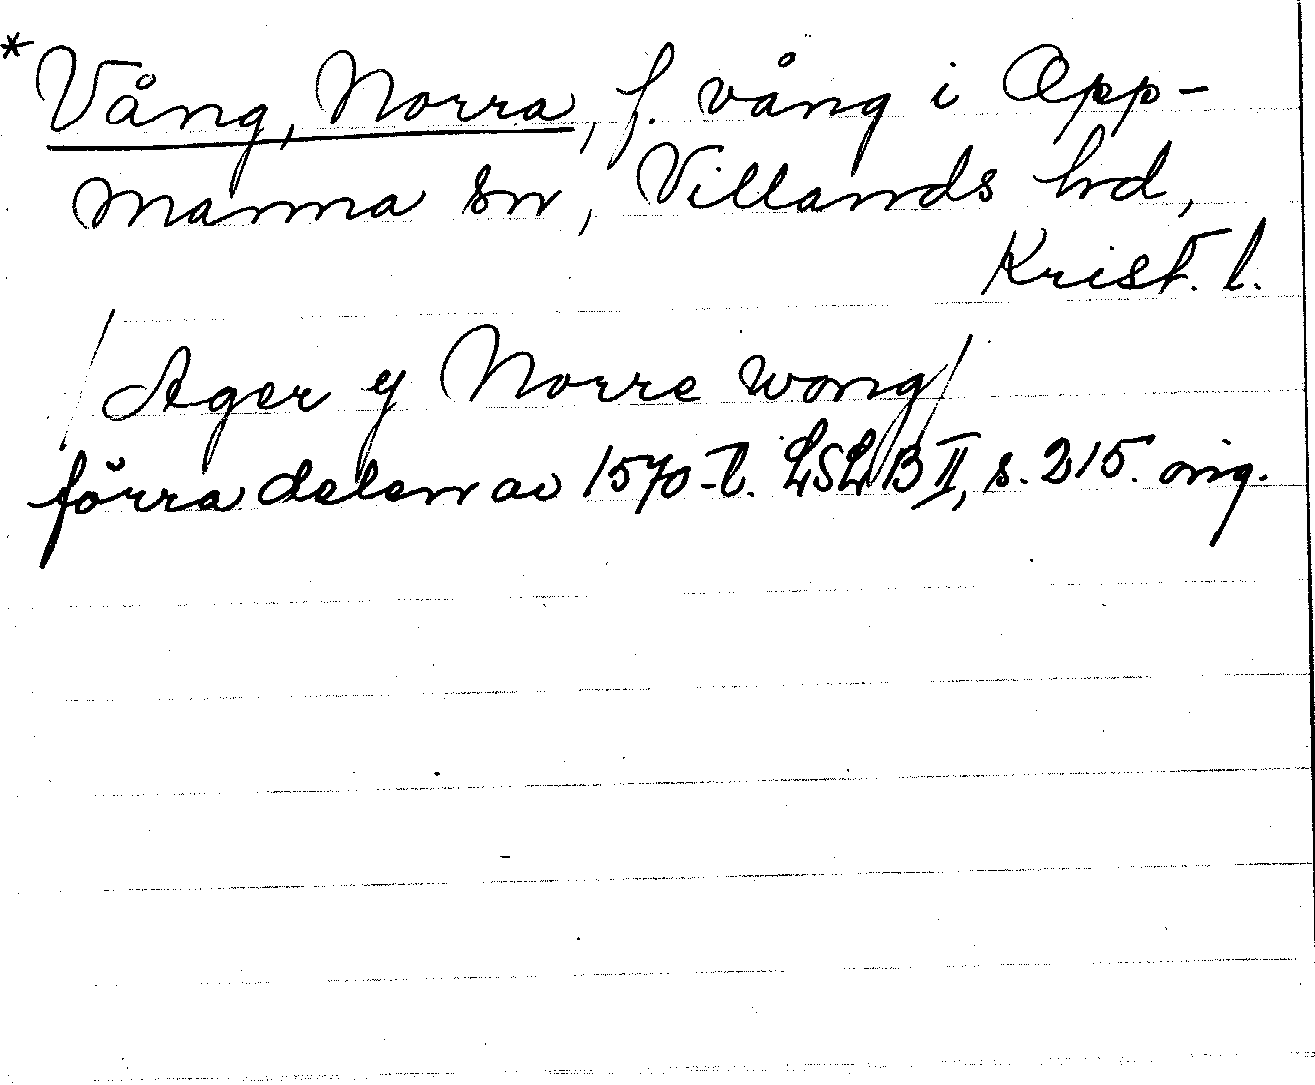 *Vång, Norra, f. vång i Opp-
manna sn, Villands hd,
Krist. l.
/Ager y Norre wong/
förra delen av 1570-t. LSLB II, s. 215. orig.